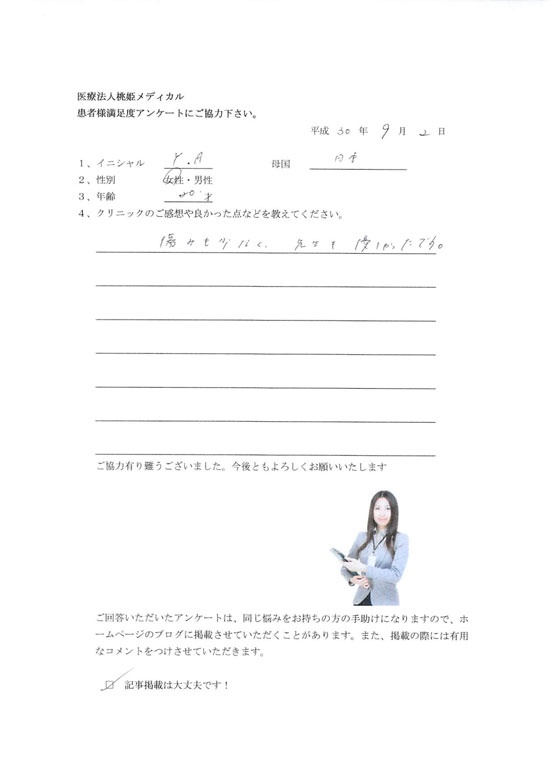 医療法人桃姫メディカル
患者様満足度アンケートにご協力下さい。
平成 30 年 9 月 2 日
1、イニシャル Y.A 母国 日本
2、性別 女性・男性
3、年齢 20 才
4、クリニックのご感想や良かった点などを教えてください。
痛みも少なく、先生も優しかったです。
ご協力有り難うございました。今後ともよろしくお願いいたします
ご回答いただいたアンケートは、同じ悩みをお持ちの方の手助けになりますので、ホ
ームページのブログに掲載させていただくことがあります。また、掲載の際には有用
なコメントをつけさせていただきます。
□ 記事掲載は大丈夫です！